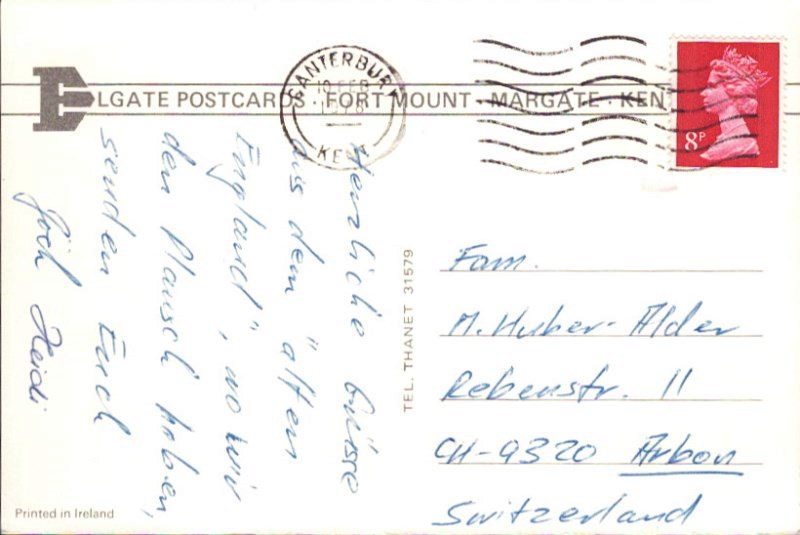 CANTERBURY
10 FEB
1978
KENT
8P
ELGATE POSTCARDS · FORT MOUNT · MARGATE · KENT
Herzliche Grüsse
aus dem "alten
England", wo wir
den Plausch haben,
senden Euch
Heidi
TEL. THANET 31579
Fam.
M. Huber-Alder
Rebenstr. 11
CH-9320 Arbon
Switzerland
Printed in Ireland